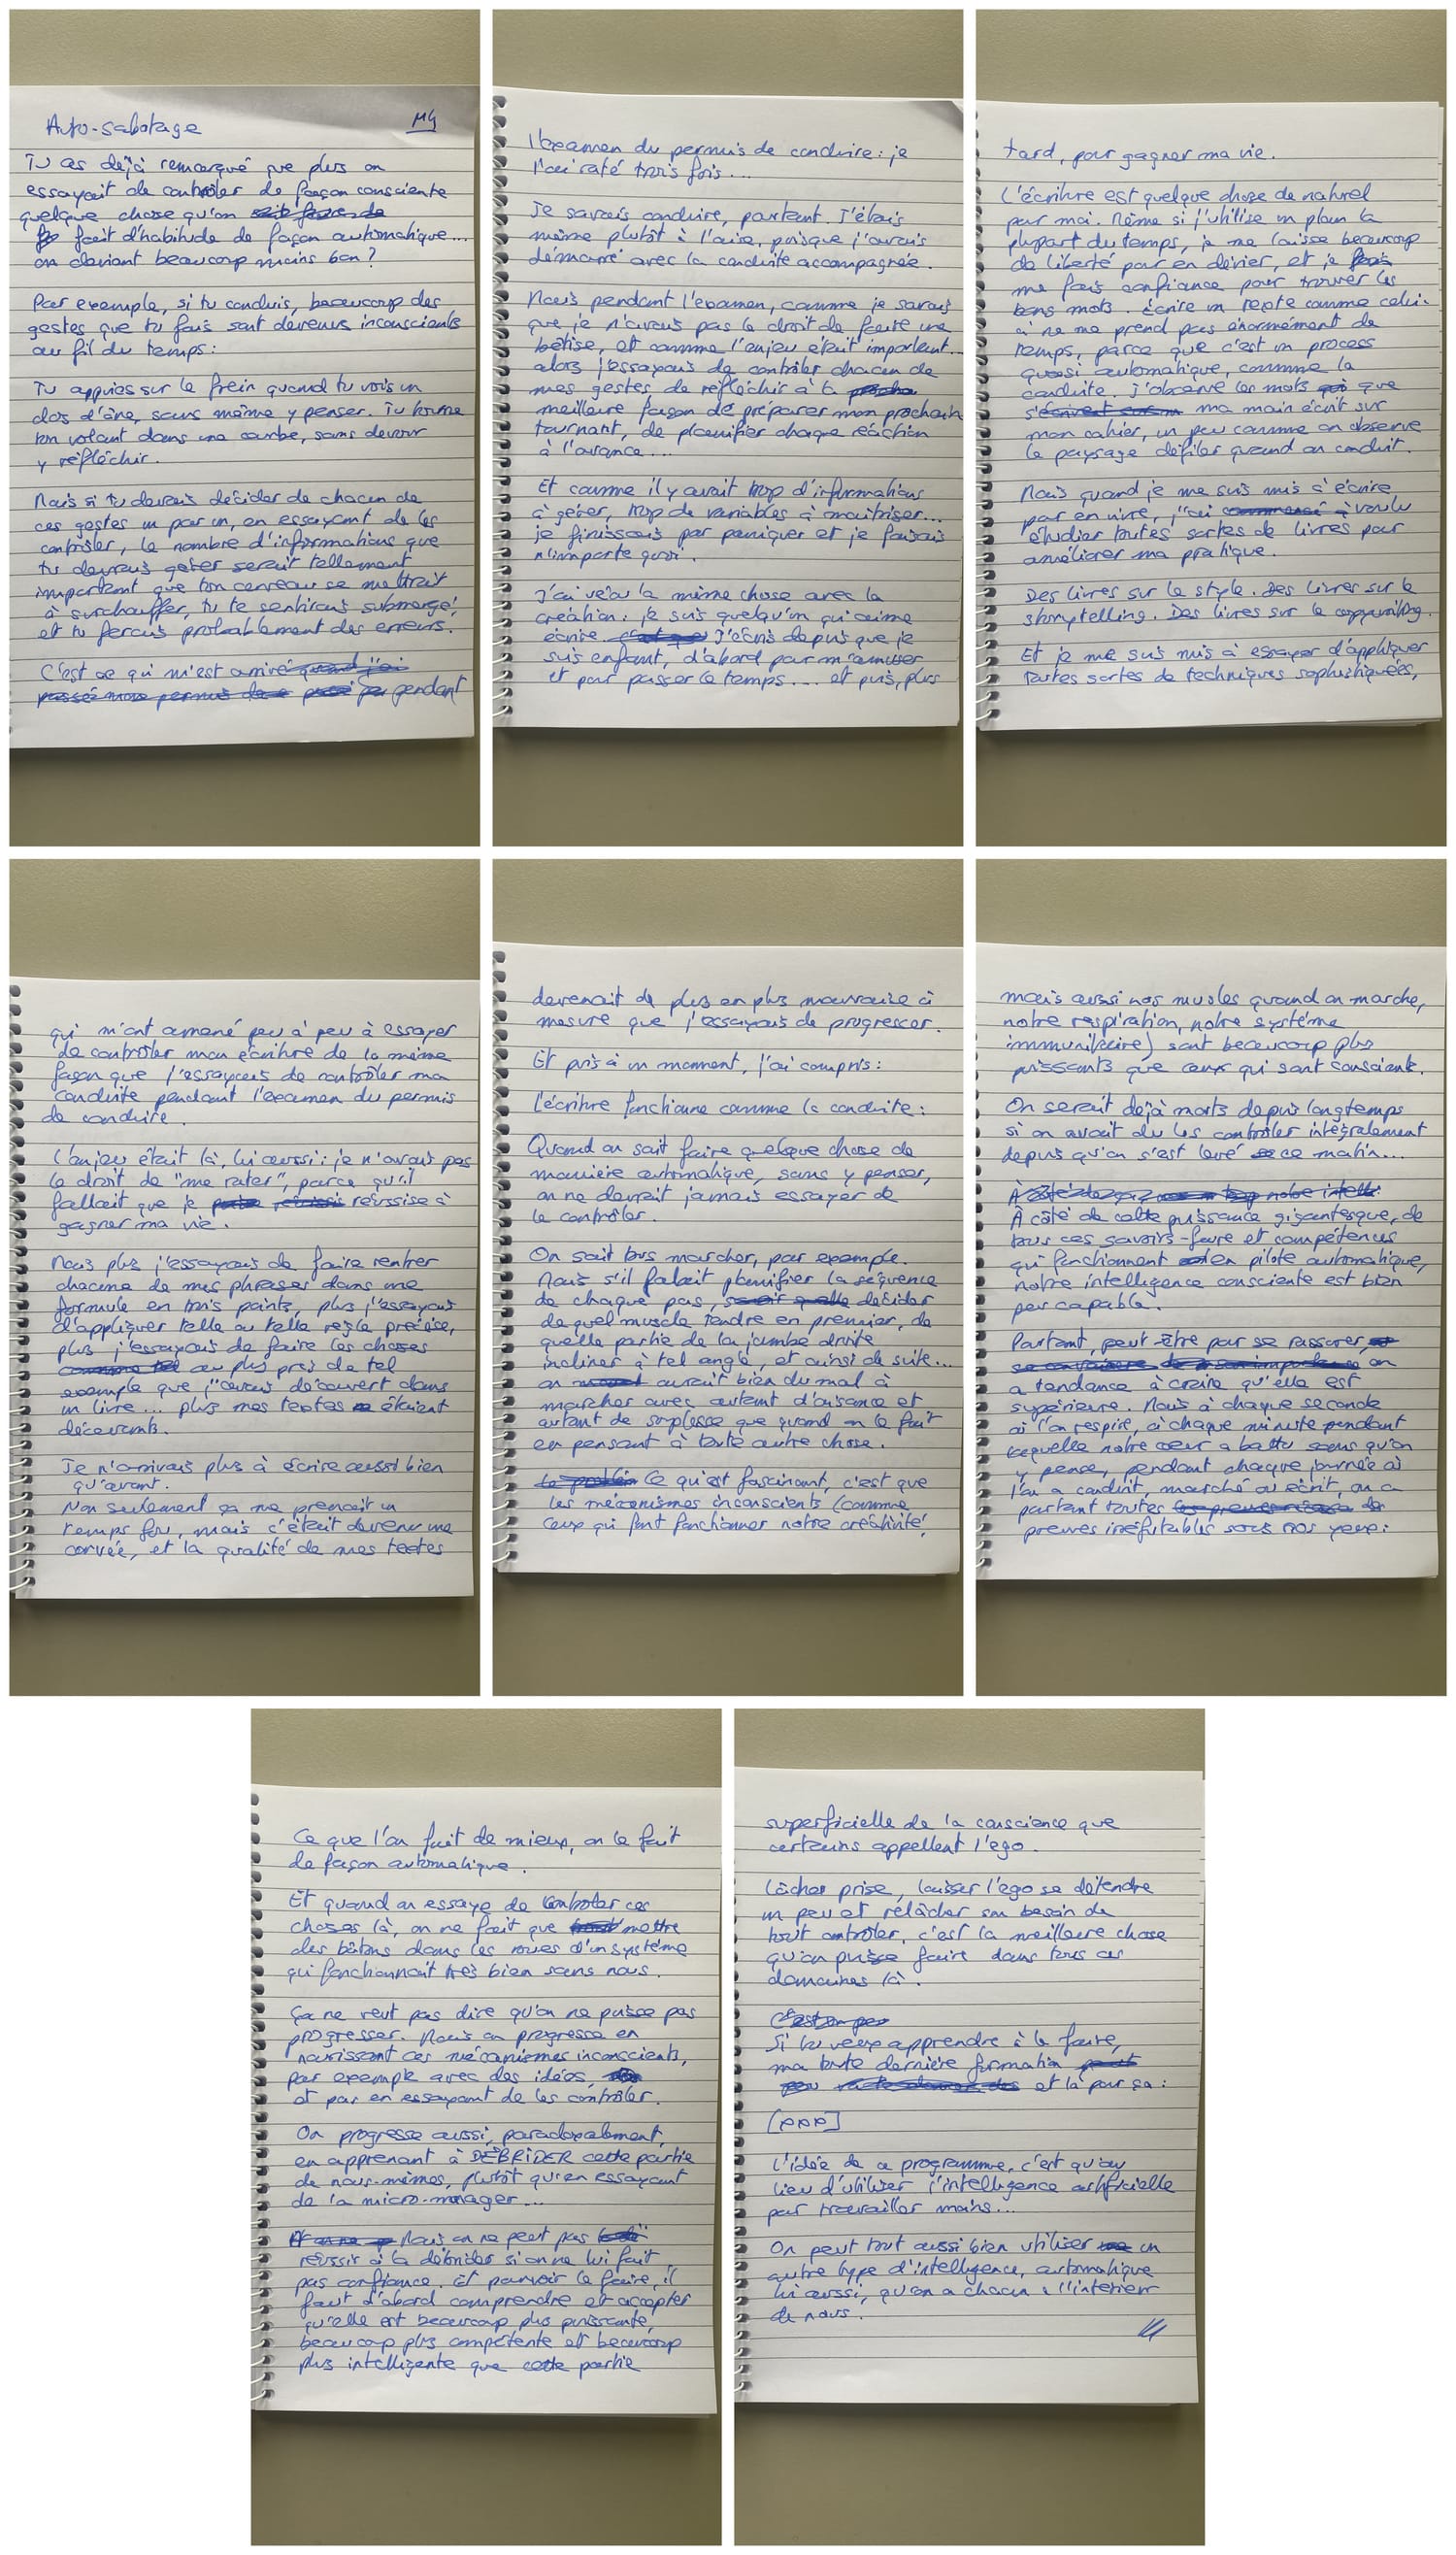 Auto-sabotage
MG
Tu as déjà remarqué que plus on
essayait de contrôler de façon consciente
quelque chose qu'on
fait d'habitude de façon automatique...
on devient beaucoup moins bon ?
Par exemple, si tu conduis, beaucoup des
gestes que tu fais sont devenus inconscients
au fil du temps :
Tu appuies sur le frein quand tu vois un
dos d'âne, sans même y penser. Tu tournes
ton volant dans une courbe, sans devoir
y réfléchir.
Mais si tu devais décider de chacun de
ces gestes un par un, en essayant de les
contrôler, le nombre d'informations que
tu devrais gérer serait tellement
important que ton cerveau se mettrait
à surchauffer, tu te sentirais submergé,
et tu ferais probablement des erreurs.
C'est ce qui m'est arrivé quand j'ai
passé mon permis pendant
l'examen du permis de conduire : je
l'ai raté trois fois...
Je savais conduire, pourtant. J'étais
même plutôt à l'aise, puisque j'avais
démarré avec la conduite accompagnée.
Mais pendant l'examen, comme je savais
que je n'avais pas le droit de faire une
bêtise, et comme l'enjeu était important...
alors j'essayais de contrôler chacun de
mes gestes de réfléchir à la
meilleure façon de préparer mon prochain
tournant, de planifier chaque réaction
à l'avance...
Et comme il y avait trop d'informations
à gérer, trop de variables à maîtriser...
je finissais par paniquer et je faisais
n'importe quoi.
J'ai vécu la même chose avec la
création : je suis quelqu'un qui aime
écrire. J'écris depuis que je
suis enfant, d'abord pour m'amuser
et pour passer le temps... et puis, plus
tard, pour gagner ma vie.
L'écriture est quelque chose de naturel
pour moi. Même si j'utilise un plan la
plupart du temps, je me laisse beaucoup
de liberté pour en dévier, et je fais
me fais confiance pour trouver les
bons mots. écrire un texte comme celui-
ci ne me prend pas énormément de
temps, parce que c'est un process
quasi automatique, comme la
conduite. j'observe les mots qui que
s'écrivent ma main écrit sur
mon cahier, un peu comme on observe
le paysage défiler quand on conduit.
Mais quand je me suis mis à écrire
pour en vivre, j'ai commencé à voulu
étudier toutes sortes de livres pour
améliorer ma pratique.
Des livres sur le style. Des livres sur le
storytelling. Des livres sur le copywriting.
Et je me suis mis à essayer d'appliquer
toutes sortes de techniques sophistiquées,
qui m'ont amené peu à peu à essayer
de contrôler mon écriture de la même
façon que j'essayais de contrôler ma
conduite pendant l'examen du permis
de conduire.
L'enjeu était là, lui aussi : je n'avais pas
le droit de "me rater", parce qu'il
fallait que je réussisse à
gagner ma vie.
Mais plus j'essayais de faire rentrer
chacune de mes phrases dans une
formule en trois points, plus j'essayais
d'appliquer telle ou telle règle précise,
plus j'essayais de faire les choses
comme tel au plus près de tel
exemple que j'avais découvert dans
un livre... plus mes textes étaient
décevants.
Je n'arrivais plus à écrire aussi bien
qu'avant.
Non seulement ça me prenait un
temps fou, mais c'était devenu une
corvée, et la qualité de mes textes
devenait de plus en plus mauvaise à
mesure que j'essayais de progresser.
Et puis à un moment, j'ai compris :
L'écriture fonctionne comme la conduite :
Quand on sait faire quelque chose de
manière automatique, sans y penser,
on ne devrait jamais essayer de
le contrôler.
On sait tous marcher, par exemple.
Mais s'il fallait planifier la séquence
de chaque pas, savoir quelle décider
de quel muscle tendre en premier, de
quelle partie de la jambe droite
incliner à tel angle, et ainsi de suite...
on aurait bien du mal à
marcher avec autant d'aisance et
autant de souplesse que quand on le fait
en pensant à toute autre chose.
Le problèm Ce qu'est fascinant, c'est que
les mécanismes inconscients (comme
ceux qui font fonctionner notre créativité,
mais aussi nos muscles quand on marche,
notre respiration, notre système
immunitaire) sont beaucoup plus
puissants que ceux qui sont conscients.
On serait déjà morts depuis longtemps
si on avait du les contrôler intégralement
depuis qu'on s'est levé ce matin...
À côté de notre intelli
À côté de cette puissance gigantesque, de
tous ces savoirs-faire et compétences
qui fonctionnent en pilote automatique,
notre intelligence consciente est bien
peu capable.
Pourtant, peut-être pour se rassurer,
se convaincre de son importance on
a tendance à croire qu'elle est
supérieure. Mais à chaque seconde
où l'on respire, à chaque minute pendant
laquelle notre cœur a battu sans qu'on
y pense, pendant chaque journée où
l'on a conduit, marché ou écrit, on a
pourtant toutes les preuves des
preuves irréfutables sous nos yeux :
Ce que l'on fait de mieux, on le fait
de façon automatique.
Et quand on essaye de contrôler ces
choses là, on ne fait que mettre
des bâtons dans les roues d'un système
qui fonctionnait très bien sans nous.
Ça ne veut pas dire qu'on ne puisse pas
progresser. Mais on progresse en
nourissant ces mécanismes inconscients,
par exemple avec des idées,
et pas en essayant de les contrôler.
On progresse aussi, paradoxalement,
en apprenant à DÉBRIDER cette partie
de nous-mêmes, plutôt qu'en essayant
de la micro-manager...
Mais on ne peut pas
réussir à la débrider si on ne lui fait
pas confiance. Et pouvoir le faire, il
faut d'abord comprendre et accepter
qu'elle est beaucoup plus puissante,
beaucoup plus compétente et beaucoup
plus intelligente que cette partie
superficielle de la conscience que
certains appellent l'ego.
Lâcher prise, laisser l'ego se détendre
un peu et relâcher son besoin de
tout contrôler, c'est la meilleure chose
qu'on puisse faire dans tous ces
domaines là.
C'est un peu
Si tu veux apprendre à le faire,
ma toute dernière formation
et là pour ça :
[PPP]
L'idée de ce programme, c'est qu'au
lieu d'utiliser l'intelligence artificielle
pour travailler moins...
On peut tout aussi bien utiliser un
autre type d'intelligence, automatique
lui aussi, qu'on a chacun à l'intérieur
de nous.